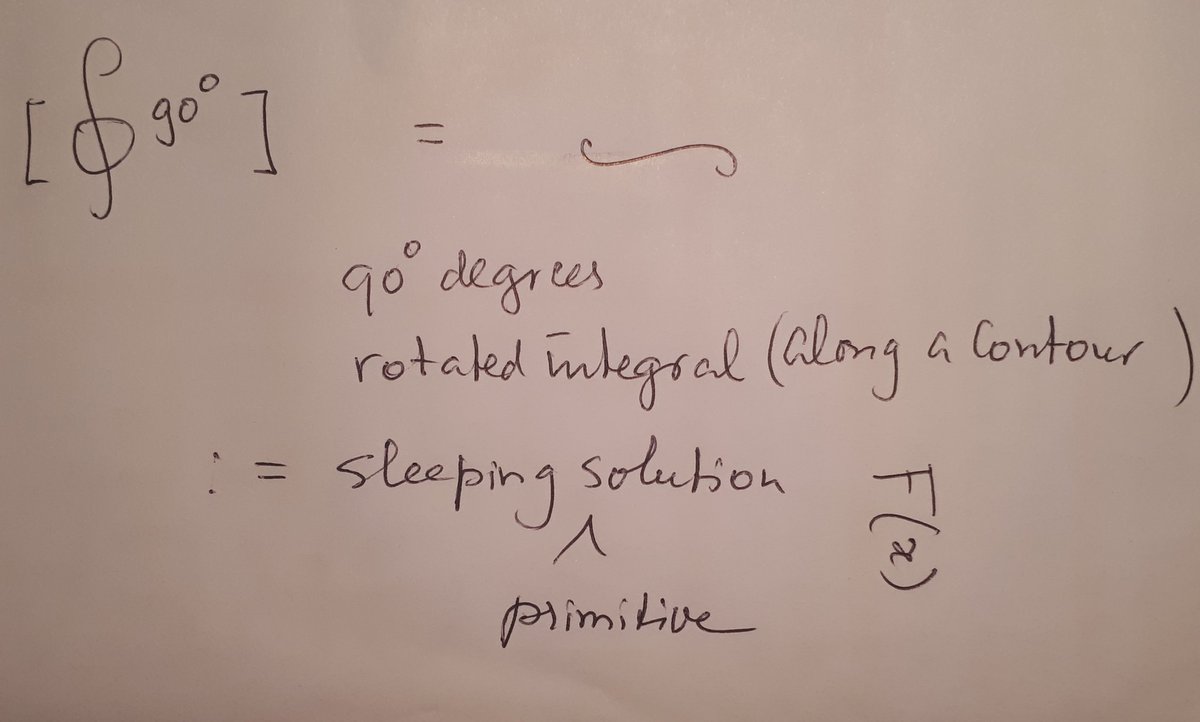 [∮ 90°] = ∽
90° degrees
rotated integral (along a contour)
:= sleeping solution F(x)
^
primitive